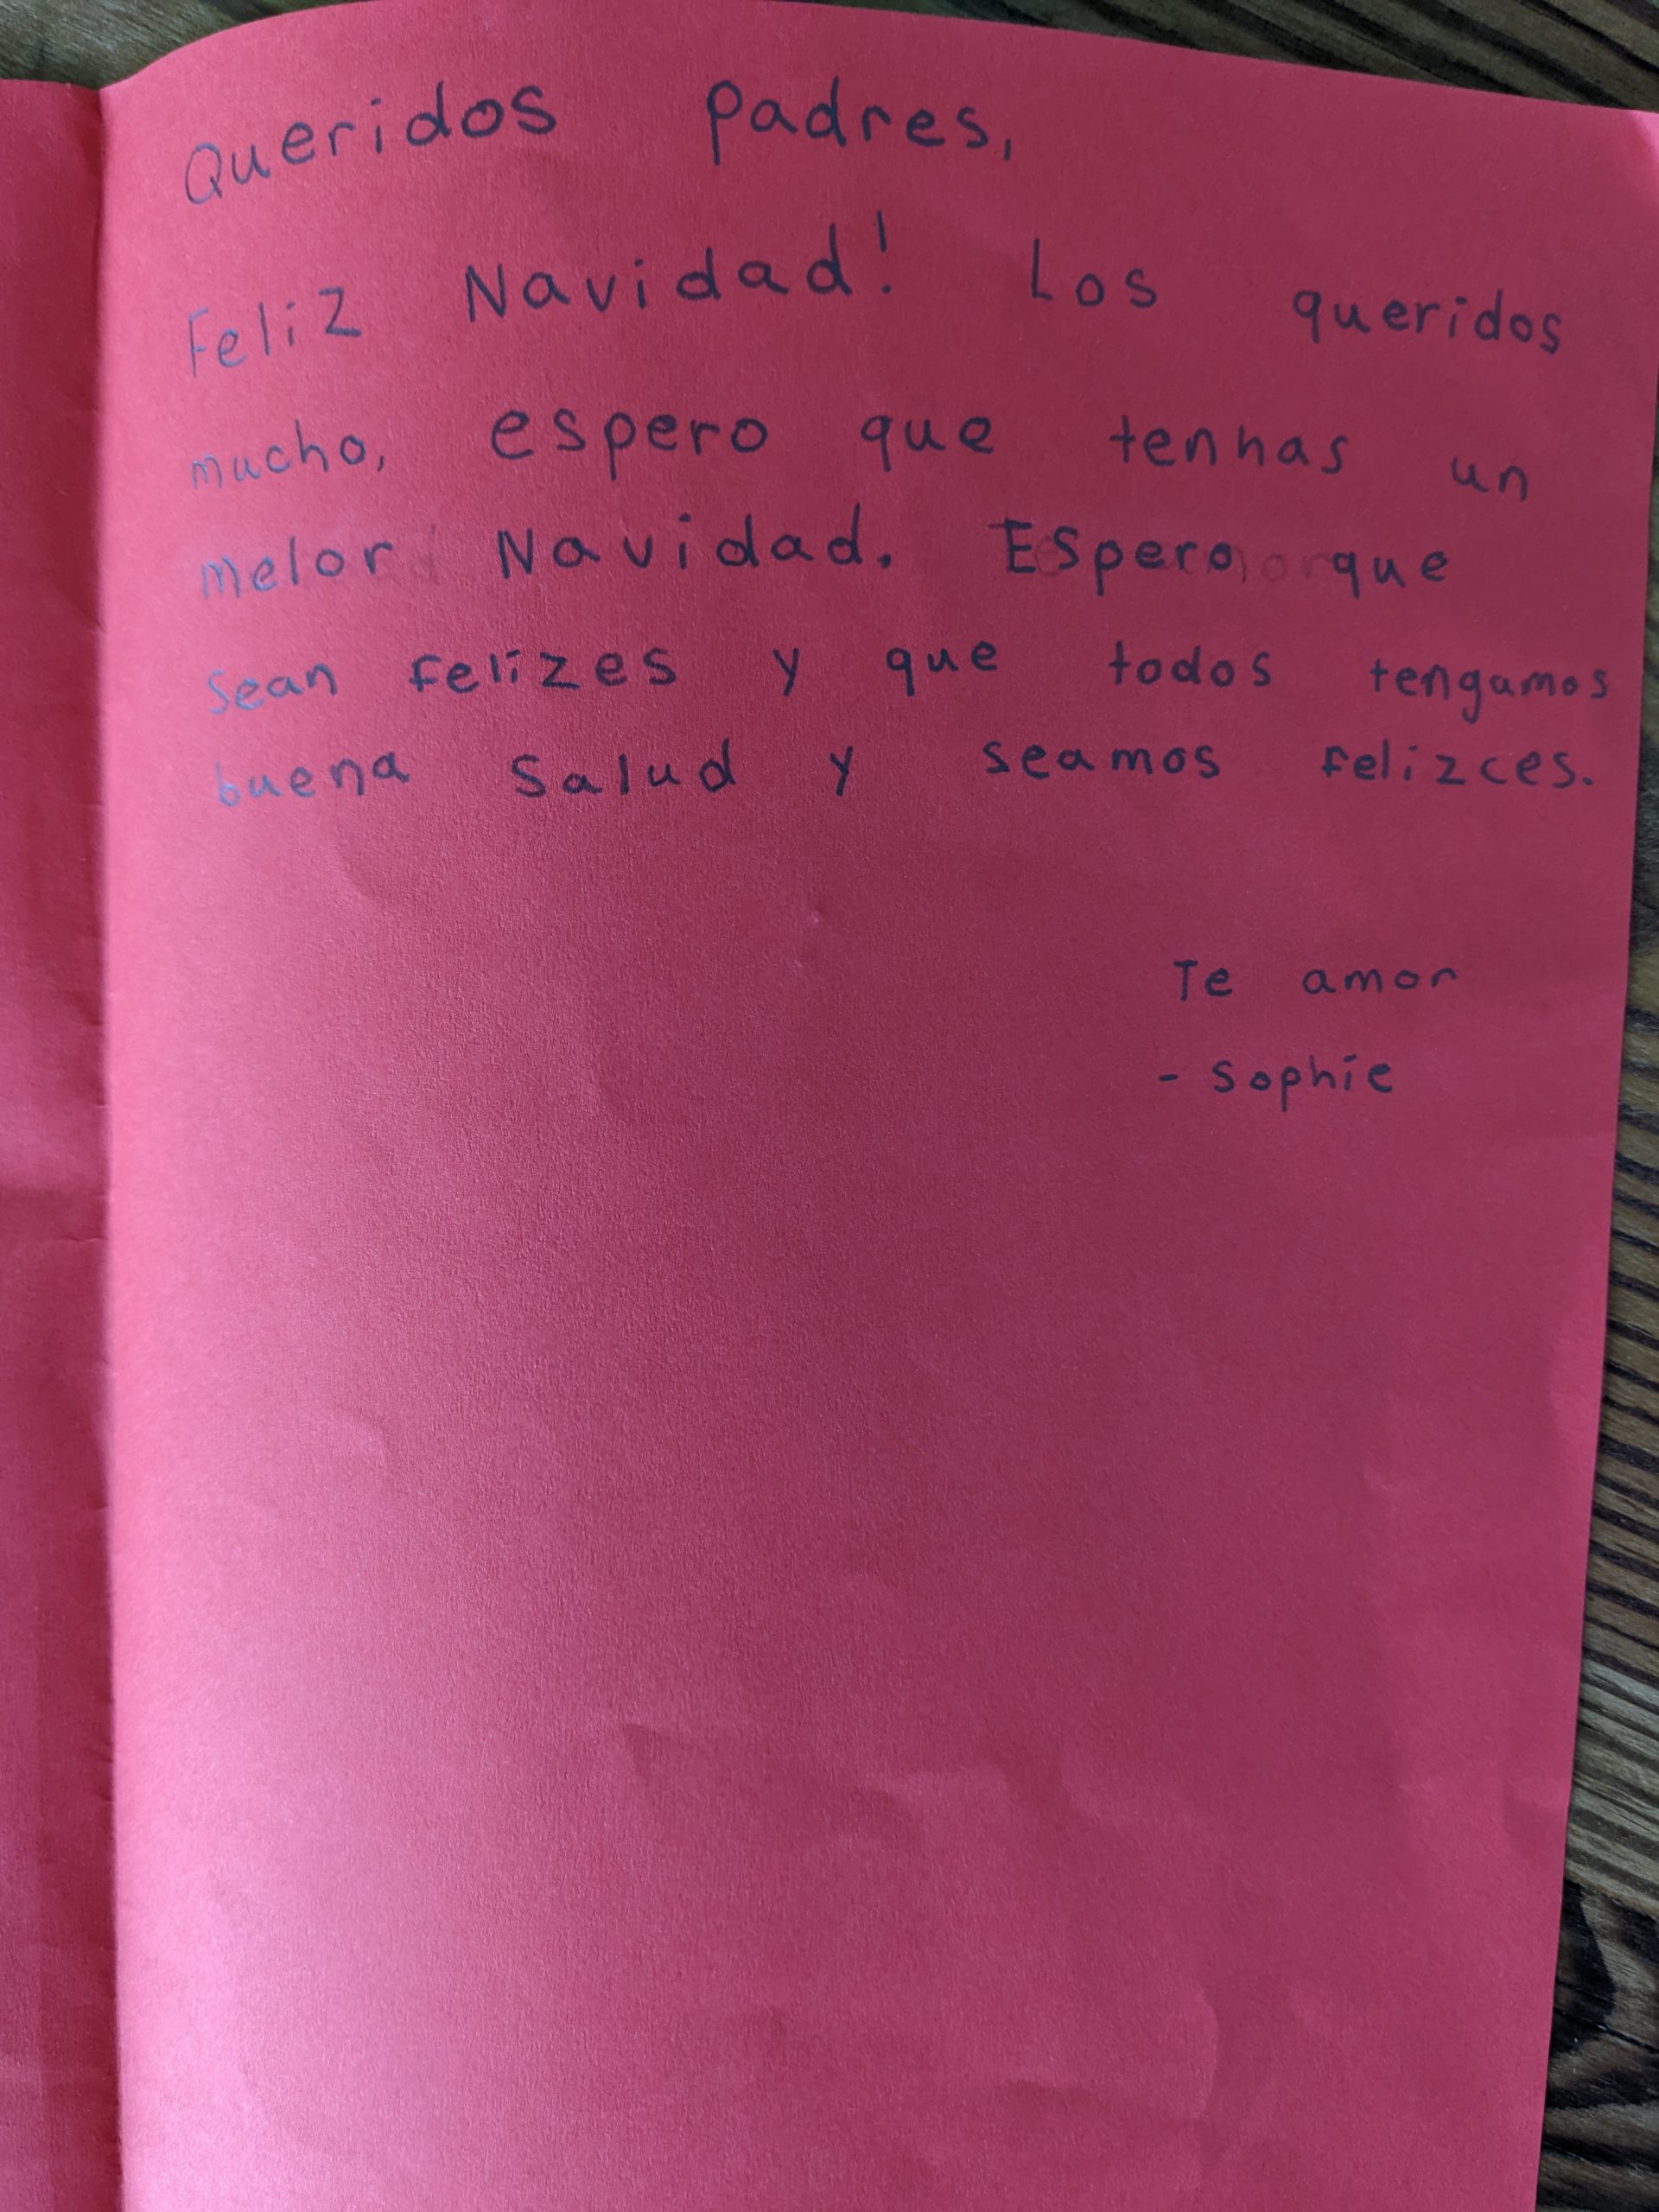 Queridos padres,
Feliz Navidad! Los queridos
mucho, espero que tenhas un
melor Navidad. Espero que
sean felizes y que todos tengamos
buena salud y seamos felizces.
Te amor
- Sophie